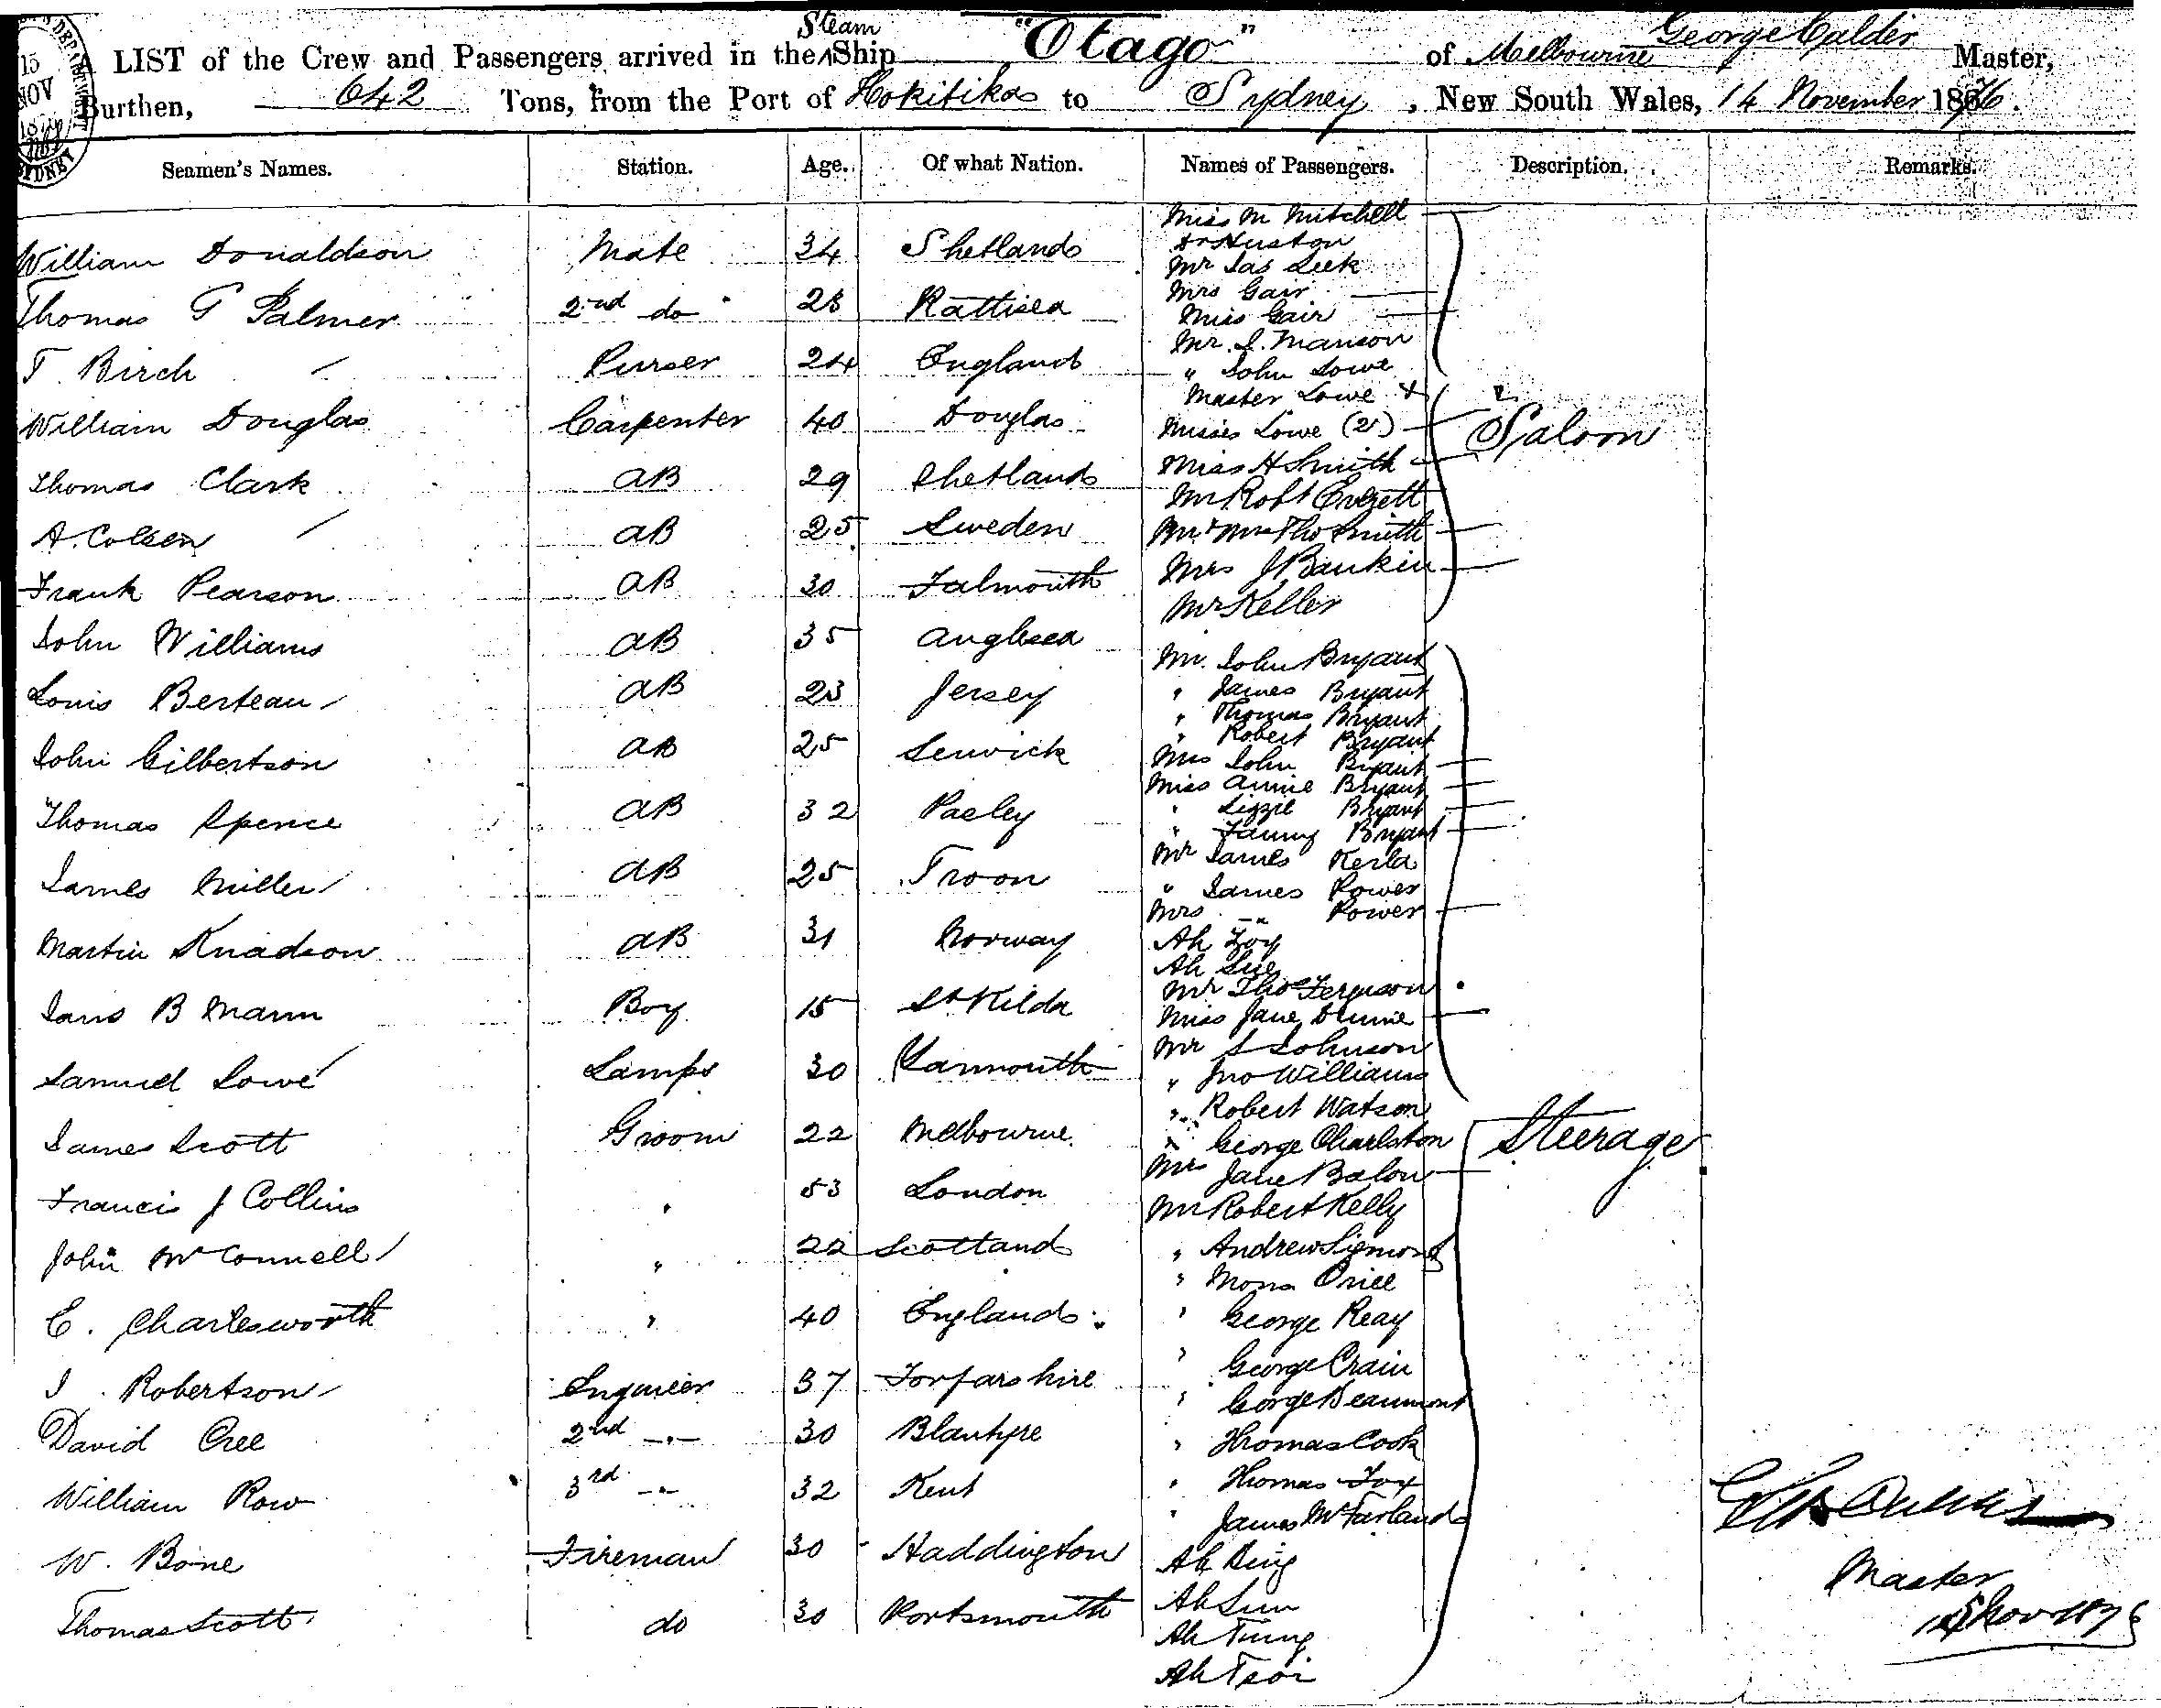 15
NOV
1876
SYDNEY
A LIST of the Crew and Passengers arrived in the Steam Ship "Otago" of Melbourne George Calder Master,
Burthen, 642 Tons, from the Port of Hokitika to Sydney, New South Wales, 14 November 1876.
Seamen's Names. Station. Age. Of what Nation. Names of Passengers. Description. Remarks.
William Donaldson Mate 34 Shetlands
Thomas G Palmer 2nd do 28
T. Birch Purser 24 England
William Douglas Carpenter 40 Douglas
Thomas Clark AB 29 Shetlands
A. Colsen AB 25 Sweden
Frank Pearson AB 30 Falmouth
John Williams AB 35 Anglesea
Louis Berteau AB 23 Jersey
John Gilbertson AB 25 Lerwick
Thomas Spence AB 32 Pasley
James Miller AB 25 Troon
Martin Knadson AB 31 Norway
Jams B Mann Boy 15 St Kilda
Samuel Lowe Lamps 30 Yarmouth
James Scott Groom 22 Melbourne
Francis J Collins " 53 London
John McConnell " 22 Scotland
C. Charlesworth " 40 England
J. Robertson Engineer 37 Forfarshire
David Cree 2nd -"- 30 Blantyre
William Row 3rd -"- 32 Kent
W. Bone Fireman 30 Haddington
Thomas Scott do 30 Portsmouth
Miss M Mitchell
Dr Huston
Mr Jas Leek
Mrs Gair
Miss Gair
Mr. J. Manson
" John Lowe
Master Lowe &
Misses Lowe (2)
Miss H Smith
Mr Robt Everett
Mr & Mrs Tho Smith
Mrs J Bankin
Mr Keller
Saloon
Mr. John Bryant
" James Bryant
" Thomas Bryant
" Robert Bryant
Mrs John Bryant
Miss Annie Bryant
" Lizzie Bryant
" Fanny Bryant
Mr James Kerla
" James Power
Mrs -"- Power
Ah Foy
Ah Sue
Mr Thos Ferguson
Miss Jane
Mr S Johnson
" Jno Williams
" Robert Watson
" George Charlston
Mrs Jane Balow
Mr Robert Kelly
" Andrew
" Price
" George Reay
" George Crain
" Gorge Beaumont
" Thomas Cook
" Thomas Fox
" James McFarland
Ah King
Ah Sun
Ah Tung
Ah Tsoi
Steerage
Master
Nov 1876